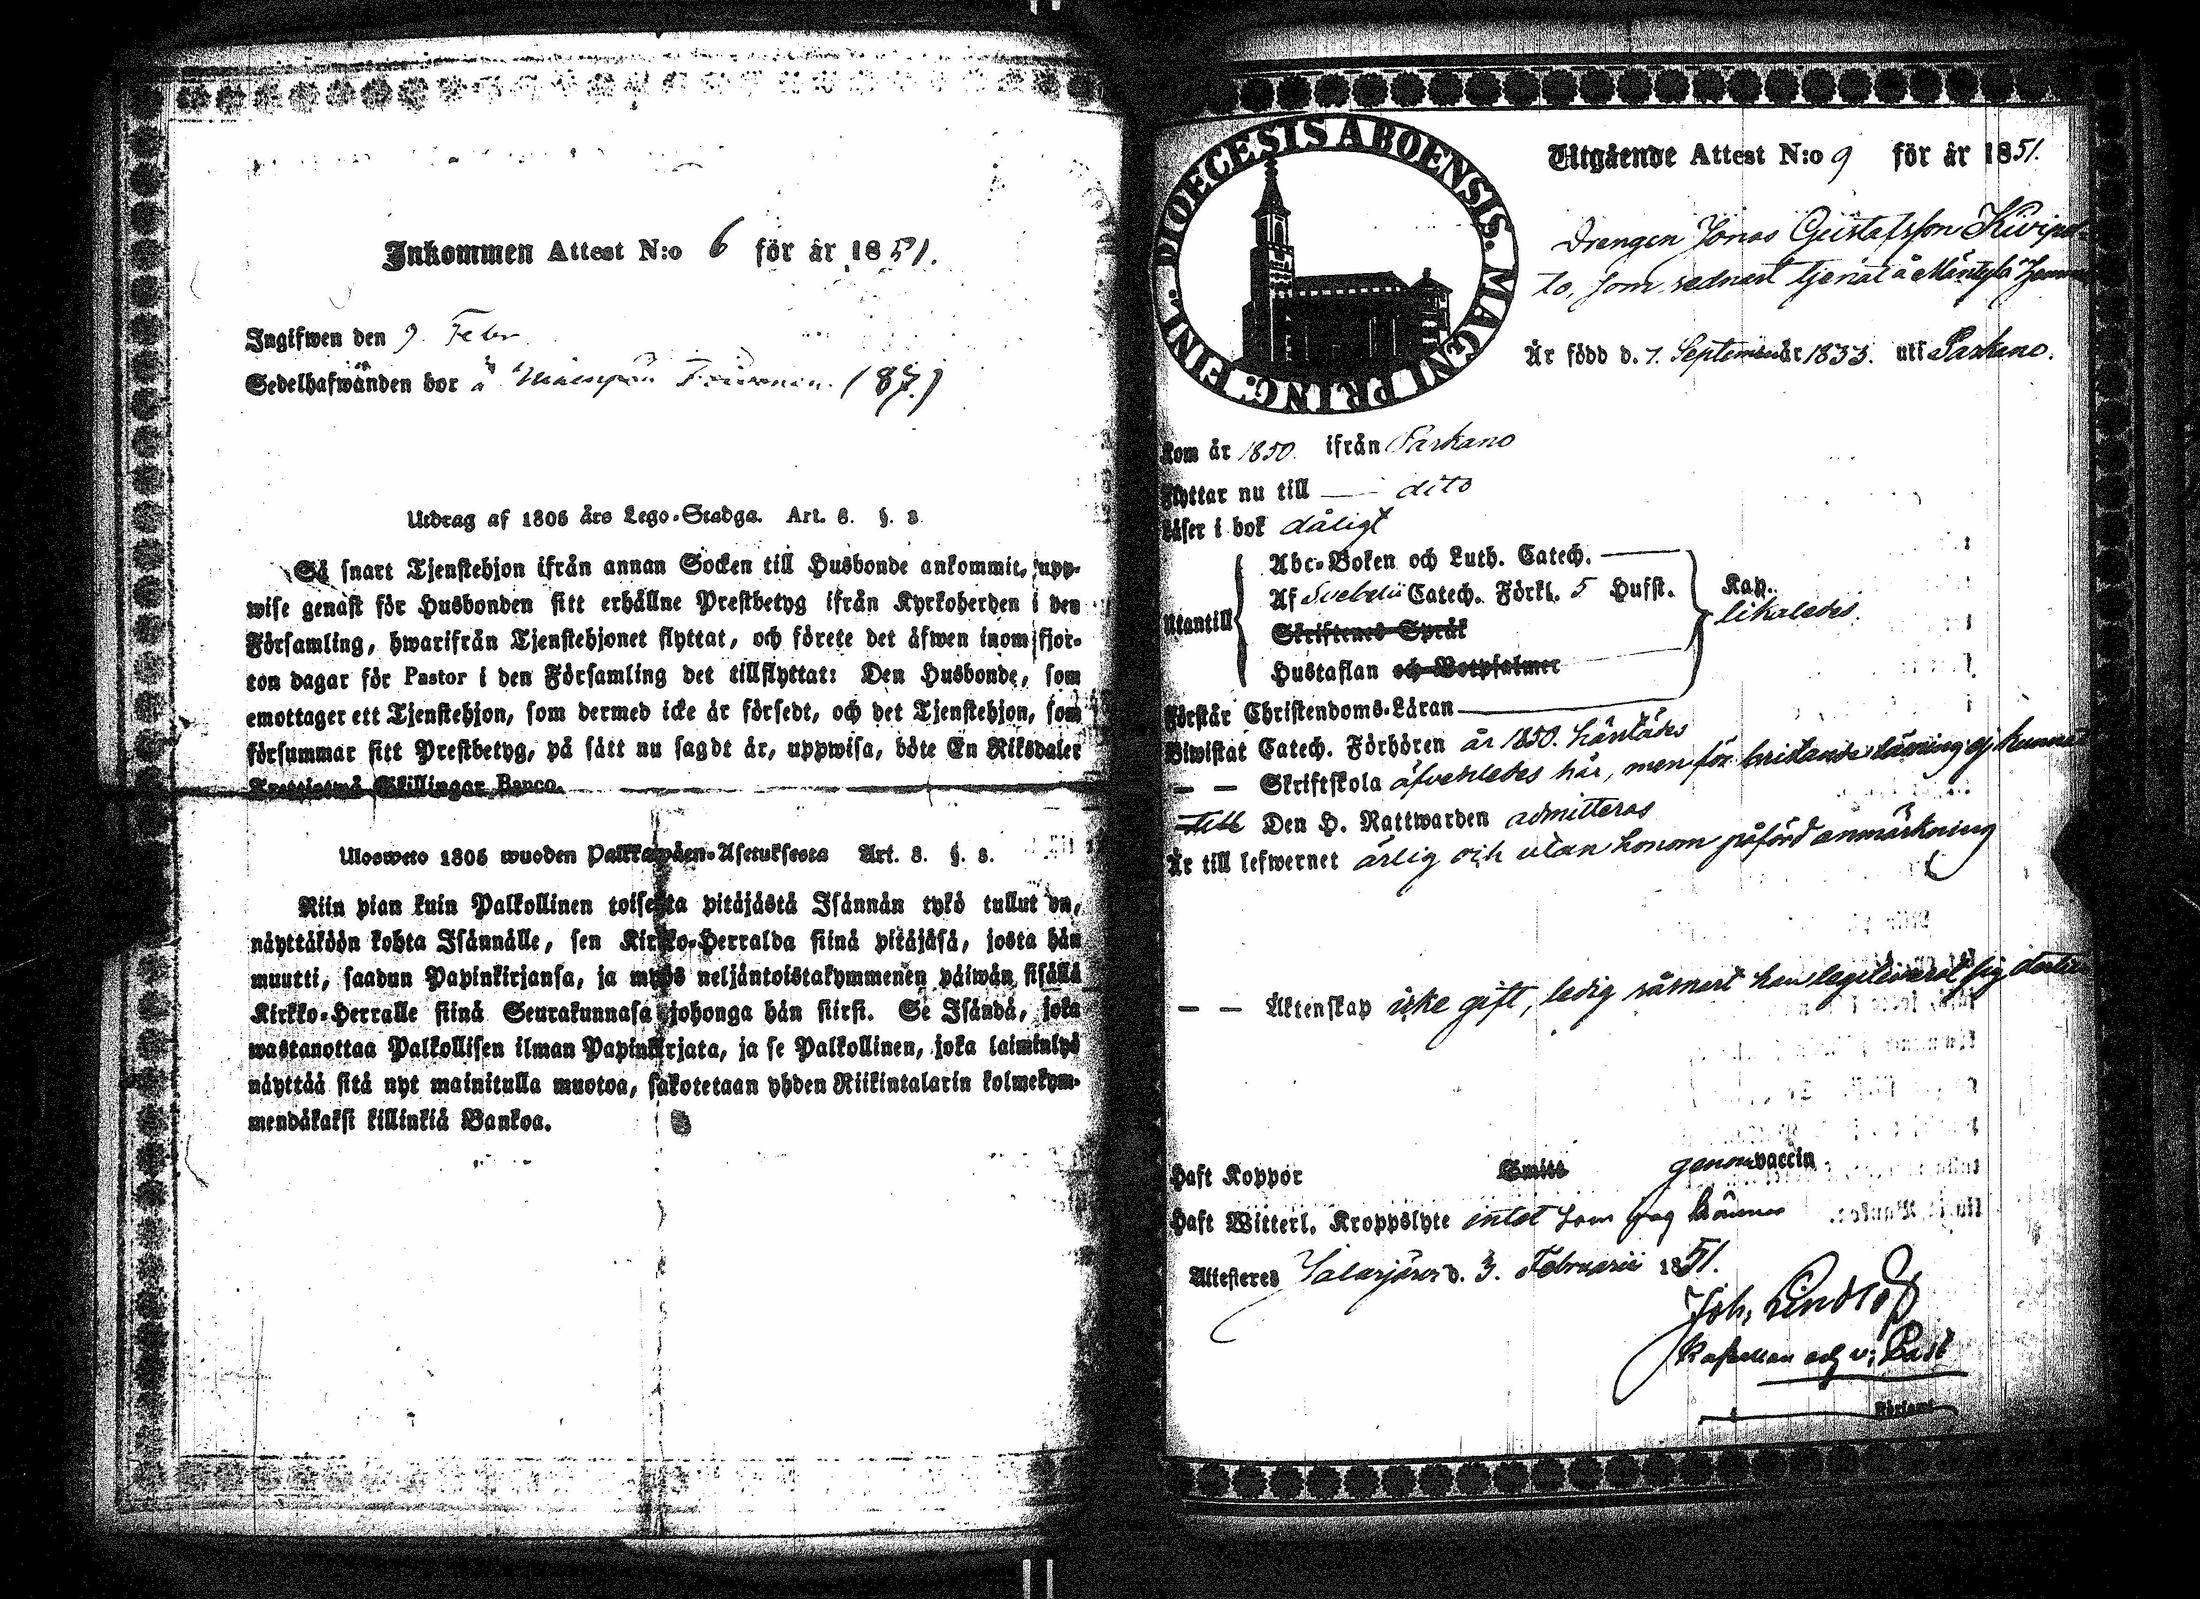 Inkommen Attest N:o 6 för år 1851.
Ingifwen den 9. Febr
Sedelhafwanden bor å (87.)
Utdrag af 1805 års Lego-Stadga. Art. 6. §. 3
Så snart Tjenstehjon ifrån annan Socken till Husbonde ankommit, upp-
wise genast för Husbonden sitt erhållne Prestbetyg ifrån Kyrkoherden i den
Församling, hwarifrån Tjenstehjonet flyttat, och förete det äfwen inom fjor-
ton dagar för Pastor i den Församling det tillflyttat: Den Husbonde, som
emottager ett Tjenstehjon, som dermed icke är försedt, och det Tjenstehjon, som
försummar sitt Prestbetyg, på sätt nu sagdt är, uppwisa, böte En Riksdaler
Trettiotwå Skillingar Banco.
Ulosweto 1805 wuoden Palkkawäen-Asetuksesta Art. 8. §. 3.
Niin pian kuin Palkollinen toisesta pitäjästä Isännän tykö tullut on,
näyttäköön kohta Isännälle, sen Kirkko-Herralda siinä pitäjäsä, josta hän
muutti, saadun Papinkirjansa, ja myös neljäntoistakymmenen päiwän sisällä
Kirkko-Herralle siinä Seurakunnasa johonga hän siirsi. Se Isändä, joka
wastanottaa Palkollisen ilman Papinkirjata, ja se Palkollinen, joka laiminlyö
näyttää sitä nyt mainitulla muotoa, sakotetaan yhden Riikintalarin kolmekym-
mendäkaksi killinkiä Bankoa.
DIOECESIS ABOENSIS. MAGNI PRINC. FINL.
Utgående Attest N:o 9 för år 1851.
Drengen Jonas Gustafsson Kivipel
to, som sednast tjenat å Mäntylä
Är född d. 7. September år 1833. uti Parkano.
Kom år 1850. ifrån Parkano
Flyttar nu till — dito
Läser i bok dåligt
Utantill
Abc-Boken och Luth. Catech.
Af Svebelii Catech. Förkl. 5 Hufst.
Skriftenes Språk
Hustaflan och Botpsalmer
Kap.
likaledes.
Förstår Christendoms-Läran
Biwistat Catech. Förhören år 1850. härstädes
— — Skriftskola äfvenledes här, men för bristande läsning ej kunnat
till Den H. Nattwarden admitteras
Är till lefwernet ärlig och utan honom påförd anmärkning
— — Äktenskap icke gift, ledig såsnart han legitimerat sig
Haft Koppor Smitt genom vaccin
Haft Witterl. Kroppslyte intet som jag känner
Attesteras d. 3. Februarii 1851.
Joh. Lindlöf
Kapellan och v. Past
Församl.